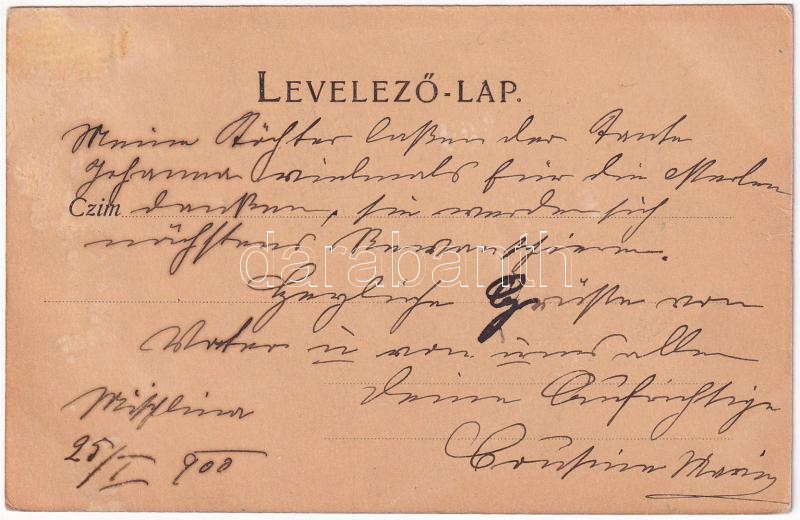 LEVELEZŐ-LAP.
Meine Töchter laßen der Tante
Johanna vielmals für die Perlen
Czim danken, sie werden sich
nächstens Revanchieren.
darabanth
Herzliche Grüße von
Vater u von uns allen
deine Aufrichtige
25/I 900
Cousine Marie